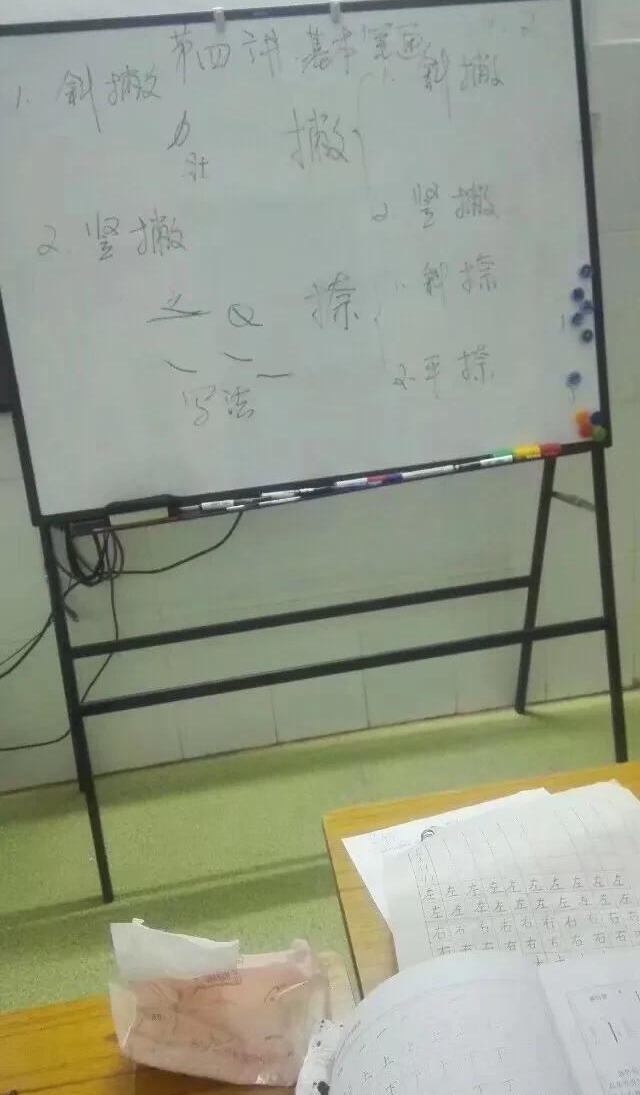 第四讲 基本笔画
1. 斜撇
撇
1. 斜撇
2. 竖撇
2. 竖撇
捺
1. 斜捺
2. 平捺
写法
左 左 左 左 左 左 左 左 左 左
左 左 左 左 左 左 左 左 左 左
右 右 右 右 右 右 右 右 右
右 右 右 右 右 右 右 右 右